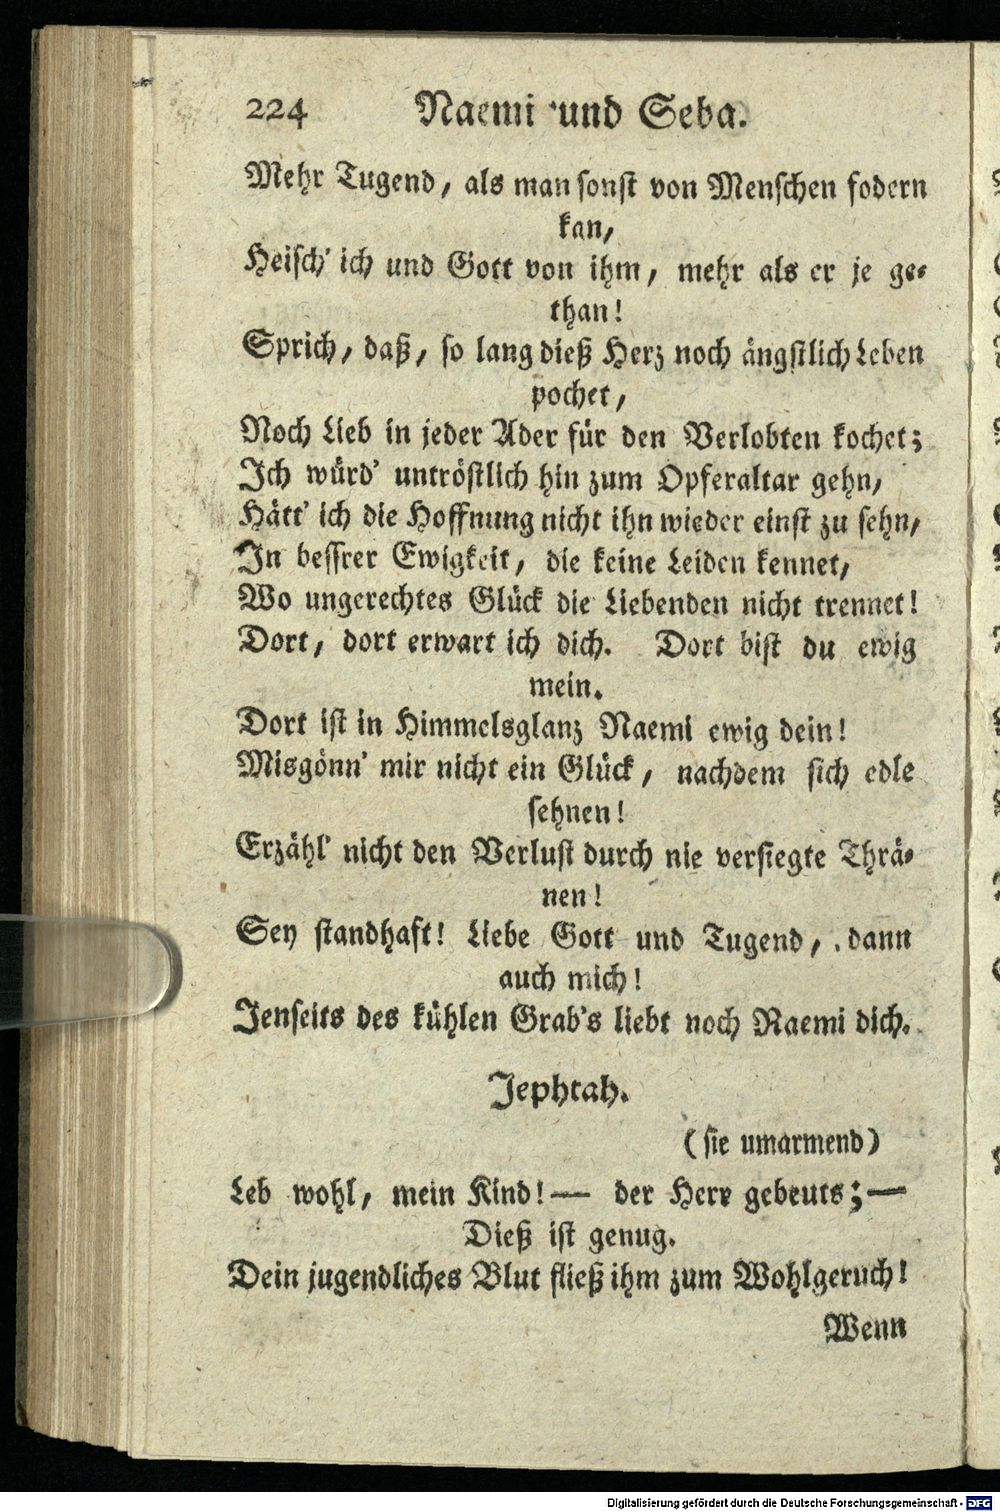 224 Naemi und Seba.
Mehr Tugend, als man sonst von Menschen fodern
kan,
Heisch' ich und Gott von ihm, mehr als er je ge-
than!
Sprich, daß, so lang dieß Herz noch ängstlich Leben
pochet,
Noch Lieb in jeder Ader für den Verlobten kochet;
Ich würd' untröstlich hin zum Opferaltar gehn,
Hätt' ich die Hoffnung nicht ihn wieder einst zu sehn,
In bessrer Ewigkeit, die keine Leiden kennet,
Wo ungerechtes Glück die Liebenden nicht trennet!
Dort, dort erwart ich dich. Dort bist du ewig
mein.
Dort ist in Himmelsglanz Naemi ewig dein!
Misgönn' mir nicht ein Glück, nachdem sich edle
sehnen!
Erzähl' nicht den Verlust durch nie versiegte Thrä-
nen!
Sey standhaft! Liebe Gott und Tugend, dann
auch mich!
Jenseits des kühlen Grab's liebt noch Naemi dich.
Jephtah.
(sie umarmend)
Leb wohl, mein Kind!— der Herr gebeuts;—
Dieß ist genug.
Dein jugendliches Blut fließ ihm zum Wohlgeruch!
Wenn
Digitalisierung gefördert durch die Deutsche Forschungsgemeinschaft - DFG